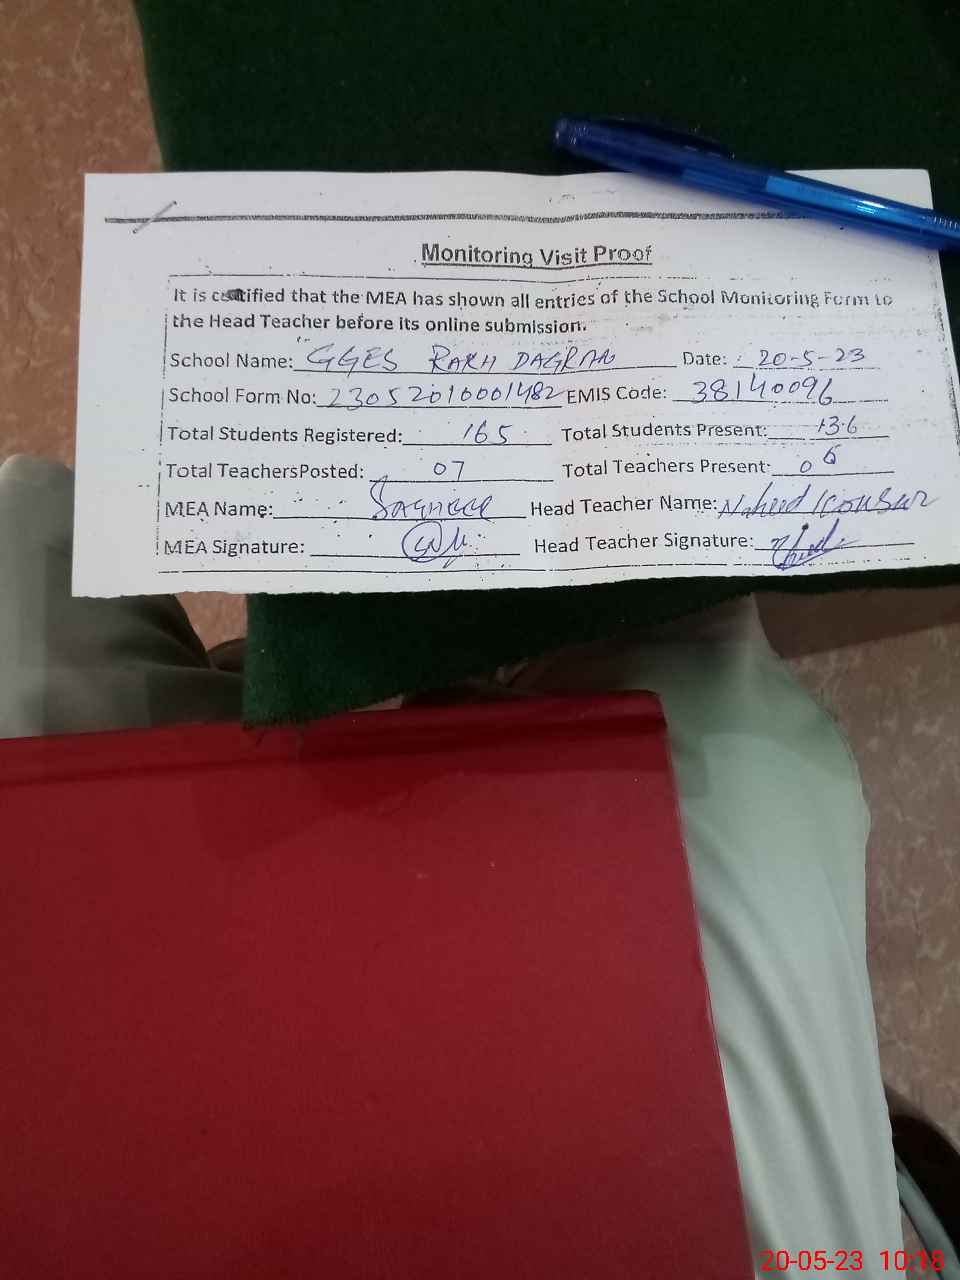 Monitoring Visit Proof
It is certified that the MEA has shown all entries of the School Monitoring Form to
the Head Teacher before its online submission.
School Name: GGES RAKH DAGRAN Date: 20-5-23
School Form No: 23052010001482 EMIS Code: 38140096
Total Students Registered: 165 Total Students Present: 136
Total Teachers Posted: 07 Total Teachers Present: 06
MEA Name: Sagheer Head Teacher Name: Naheed Kousar
MEA Signature: Head Teacher Signature:
20-05-23 10:18